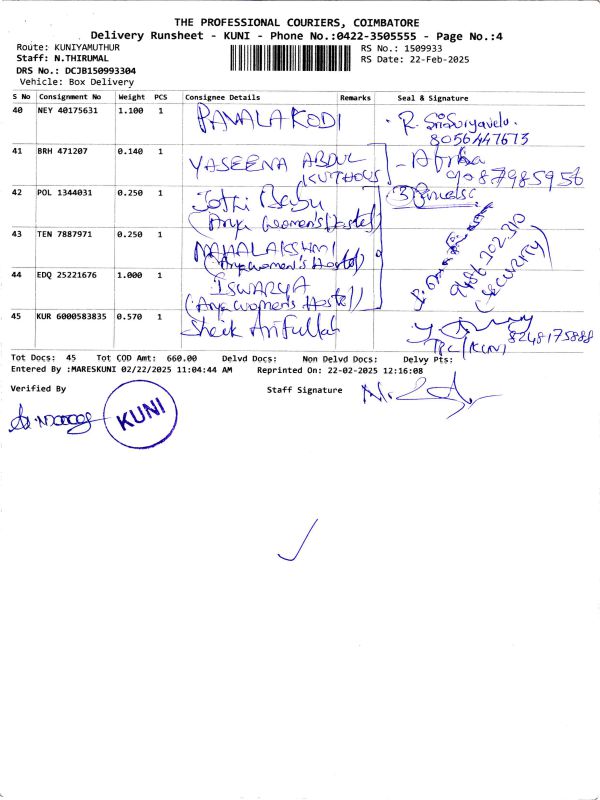 THE PROFESSIONAL COURIERS, COIMBATORE
Delivery Runsheet - KUNI - Phone No.:0422-3505555 - Page No.:4
Route: KUNIYAMUTHUR
RS No.: 1509933
Staff: N.THIRUMAL
RS Date: 22-Feb-2025
DRS No.: DCJB150993304
Vehicle: Box Delivery
S No Consignment No Weight PCS Consignee Details Remarks Seal & Signature
40 NEY 40175631 1.100 1 PAVALA KODI R. SriSuryavelu.
8056447613
41 BRH 471207 0.140 1 YASEENA ABDUL
KUTHOUS
9087985956
42 POL 1344031 0.250 1 Jothi Babu
(Arya Women's Hostel)
43 TEN 7887971 0.250 1 MAHALAKSHMI
(Arya women's Hostel)
9486 202 310
(SECURITY)
44 EDQ 25221676 1.000 1 ISWARYA
(Arya Women's Hostel)
45 KUR 6000583835 0.570 1 Sheik Arifullah
8248175888
TPC/KUNI
Tot Docs: 45 Tot COD Amt: 660.00 Delvd Docs: Non Delvd Docs: Delvy Pts:
Entered By :MARESKUNI 02/22/2025 11:04:44 AM Reprinted On: 22-02-2025 12:16:08
Verified By Staff Signature
KUNI